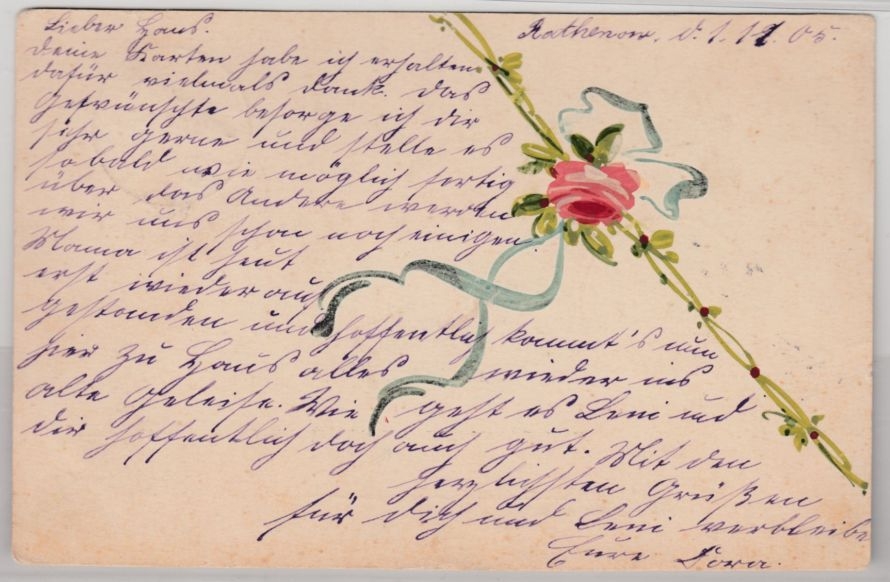 Rathenow. d. 1. 12. 05.
Lieber Hans.
deine Karten habe ich erhalten
dafür vielmals Dank. Das
Gewünschte besorge ich dir
sehr gerne und stelle es
sobald wie möglich fertig
über das Andere werden
wir uns schon noch einigen
Mama ist heut
erst wieder auf
gestanden und hoffentlich kommt's nun
hier zu Haus alles wieder ins
alte Geleise. Wie geht es Leni und
dir hoffentlich doch auch gut. Mit den
herzlichsten Grüßen
für dich und Leni verbleibe
Eure Dora.